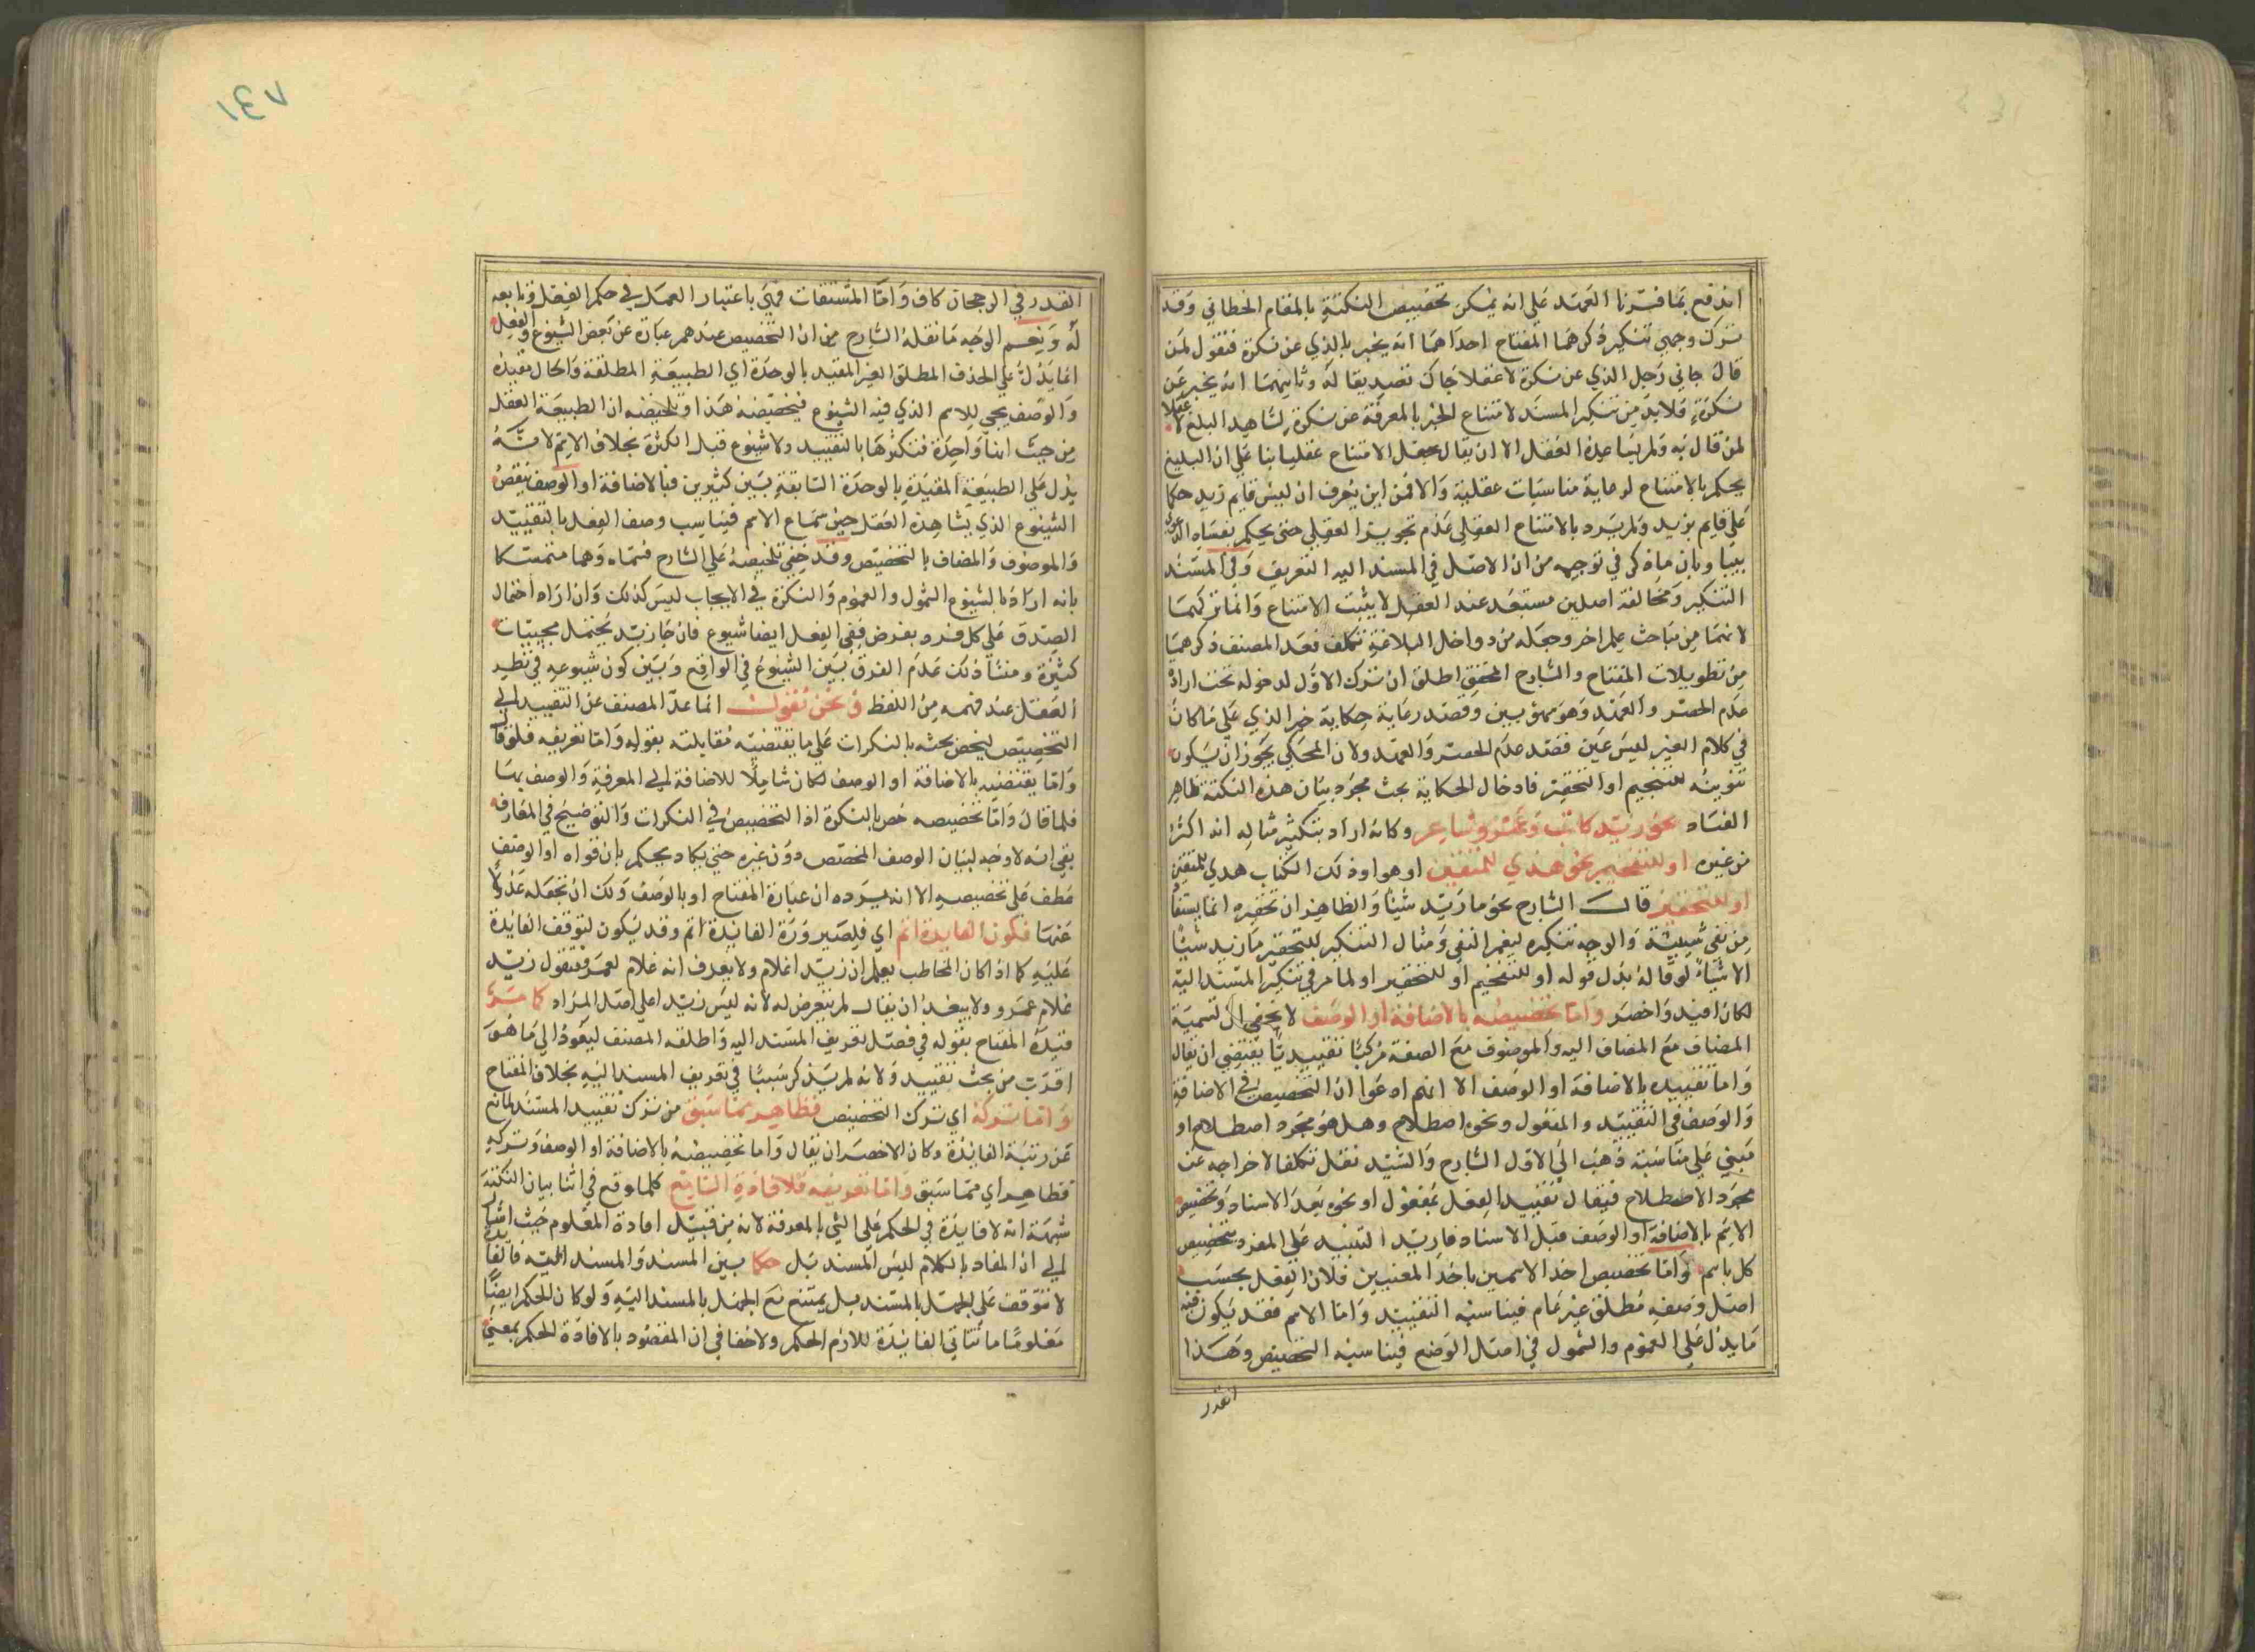 اندفع بما قررنا العهد على انه يمكن تخصيص النكتة بالمقام الخطابي وقد
ترك وجهي تنكير ذكرهما المفتاح احداهما انه يخبر بالذي عن نكرة فتقول لمن
قال جاني رجل الذي عن نكرة لا عقلا جاك تصديقا له وثانيهما انه يخبر عن
نكرة فلابد من تنكير المسند لامتناع الخبر بالمعرفة عن نكرة لشاهد البلغ لا عقلا
لمن قال به ولم يساعده العقل الا ان يقال جعل الامتناع عقليا بنا على ان البليغ
يحكم بالامتناع لرعاية مناسبات عقلية والا فمن اين يعرف ان ليس قايم زيد حكما
على قايم بزيد ولم يرد بالامتناع العقلي عدم تجويز العقلي حتى يحكم بفساد
بيننا وبان ما ذكر في توجيهه من ان الاصل في المسند اليه التعريف وفي المسند
التنكير ومخالفة اصلين مستبعد عند العقل لا يثبت الامتناع وانما تركهما
لانهما من مباحث علم اخر وجعله من دواخل البلاغة تكلف فعد المصنف ذكرهما
من تطويلات المفتاح والشارح المحقق اطلق ان ترك الاول لدخوله تحت ارادة
عدم الحصر والعهد وهو سهو بين وقصد رعاية حكاية خبر الذي على ما كان
في كلام الغير ليس عين قصد عدم الحصر والعهد ولان المحكي يجوز ان يكون
تنوينه للتفخيم او التحقير فادخال الحكاية بحث مجرد بيان هذه النكتة ظاهر
الفساد نحو زيد كاتب وعمرو شاعر وكانه اراد بتكثير مثاله انه اكثر
من غيره او للتفخيم نحو هدي للمتقين او هو او ذلك الكتاب هدي للمتقين
او للتحقير قال الشارح نحو ما زيد شيئا والظاهر ان تحقيره انما يستفاد
من نفي شيئيته والوجه تنكيره ليعم النفي ومثال التنكير للتحقير ما زيد شيئا
الا شيا لو قاله بدل قوله او للتفخيم او للتحقير او لما مر في تنكير المسند اليه
لكان افيد واخصر واما تخصيصه بالاضافة او الوصف لا يخفى ان تسمية
المضاف مع المضاف اليه والموصوف مع الصفة مركبا تقييديا يقتضي ان يقال
واما تقييده بالاضافة او الوصف الا انهم ادعوا ان التخصيص في الاضافة
والوصف في التقييد والمفعول ونحوه اصطلاح وهل هو مجرد اصطلاح او
مبني على مناسبة ذهب الى الاول الشارح والسيد نقل تكلفا لاخراجه عن
مجرد الاصطلاح فيقال تقييد الفعل بمفعول او نحوه بعد الاسناد وتخصيص
الاسم بالاضافة او الوصف قبل الاسناد فاريد التقييد على المفرد بتخصيص
كل باسم واما تخصيص احد الاسمين باحد المعنيين فلان الفعل بحسب
اصل وصفه مطلق غير عام فيناسبه التقييد واما الاسم فقد يكون فيه
ما يدل على العموم والشمول في اصل الوضع فيناسبه التخصيص وهذا
القدر
١٤٧
القدر في الرجحان كاف واما المشتقات فهي باعتبار العمل في حكم الفعل وتابعه
له ونعم الوجه ما نقله الشارح من ان التخصيص عندهم عبارة عن بعض الشيوع والفعل
انما يدل على الحدث المطلق الغير المقيد بالوحدة اي الطبيعة المطلقة والحال تقييده
والوصف يجي للاسم الذي فيه الشيوع فيخصصه هذا وتلخيصه ان الطبيعة العقل
من حيث انها واحدة فتكثرها بالتقييد ولا شيوع قبل الكثرة بخلاف الاسم لانه
يدل على الطبيعة المقيدة بالوحدة الشايعة بين كثيرين فبالاضافة او الوصف ينقص
الشيوع الذي يشاهده العقل حين سماع الاسم فيناسب وصف الفعل بالتقييد
والموصوف والمضاف بالتخصيص وقد خفي تلخيصه على الشارح متمسكا
بانه اراد بالشيوع الشمول والعموم والنكرة في الايجاب ليس كذلك وان اراد احتمال
الصدق على كل فرد بفرض ففي الفعل ايضا شيوع فان جا زيد يحتمل مجيئيات
كثيرة ومنشا ذلك عدم الفرق بين الشيوع في الواقع وبين كون شيوعه في نظر
العقل عند فهمه من اللفظ ونحن نقول انما عدل المصنف عن التقييد الى
التخصيص ليخص بحثه بالنكرات على ما يقتضيه مقابلته بقوله واما تعريفه فلو قال
واما يقتضيه بالاضافة او الوصف لكان شاملا للاضافة الى المعرفة والوصف بها
فلما قال واما تخصيصه خص بالنكرة اذ التخصيص في النكرات والتوضيح في المعارف
بقي انه لا وجه لبيان الوصف المخصص دون غيره حتى يكاد يحكم بان قوله او الوصف
عطف على تخصيصه الا انه يرده ان عبارة المفتاح او بالوصف ولك ان تجعله عدولا
عنها فكون الفايدة اتم اي فلصيرورة الفائدة اتم وقد يكون لتوقف الفائدة
عليه كما اذا كان المخاطب يعلم ان زيدا غلام ولا يعرف انه غلام لعمرو فتقول زيد
غلام عمرو ولا يبعد ان يقال لم يتعرض له لانه ليس زيدا على اصل المراد كما مر
قيده المفتاح بقوله في فصل تعريف المسند اليه واطلقه المصنف ليعود الى ما هو
اقرب من بحث تقييد ولانه لم يذكر سببا في تعريف المسند اليه بخلاف المفتاح
واما تركه اي ترك التخصيص فظاهر مما سبق من ترك تقييد المسند لمانع
عن رتبة الفائدة وكان الاخصر ان يقال واما تخصيصه بالاضافة او الوصف وتركه
فظاهر اي مما سبق واما تعريفه فلافادة السامع كلما وقع في اثنا بيان النكتة
شبهة انه لا فايدة في الحكم على الشي بالمعرفة لانه من قبيل افادة المعلوم حيث اشار
الى ان المفاد بالكلام ليس المسند بل حكما بين المسند والمسند اليه
لا تتوقف على الجهل بالمسند بل يمتنع مع الجهل بالمسند اليه ولو كان الحكم ايضا
معلوما ما تتاتى الفائدة للازم الحكم ولا خفا في ان المقصود بالافادة الحكم بمعنى